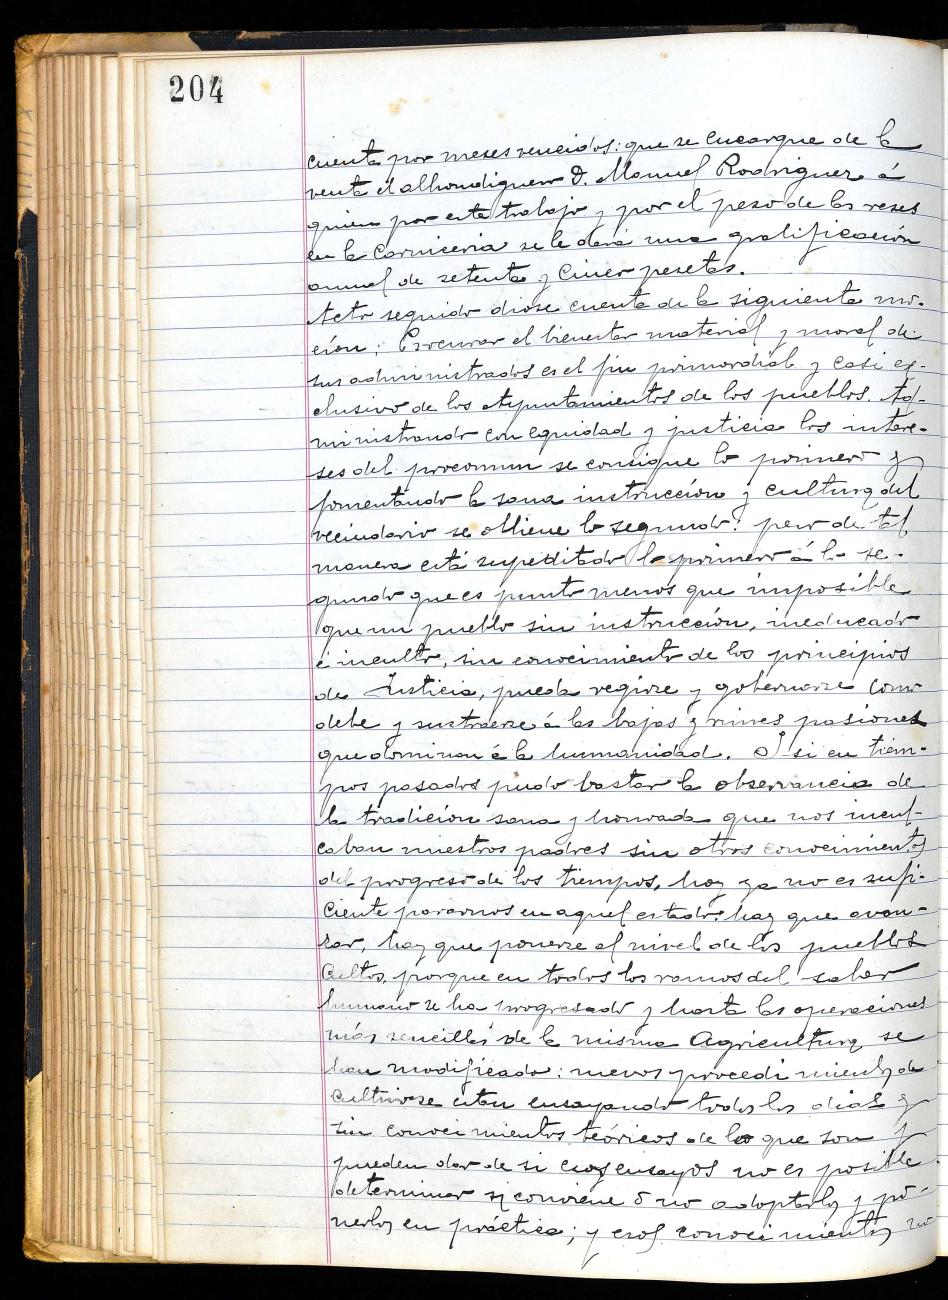 204
cuenta por meses vencidos: que se encargue de la
venta el alhondiguero D. Manuel Rodriguez á
quien por este trabajo y por el peso de las reses
en la Carniceria se le dará una gratificación
anual de setenta y cinco pesetas.
Acto seguido diose cuenta de la siguiente mo-
ción: Procurar el bienestar material y moral de
sus administrados es el fin primordial y casi ex-
clusivo de los Ayuntamientos de los pueblos. Ad-
ministrando con equidad y justicia los intere-
ses del procomun se consigue lo primero y
fomentando la sana instrucción y cultura del
vecindario se obtiene lo segundo: pero de tal
manera está supeditado lo primero á lo se-
gundo que es punto menos que imposible
que un pueblo sin instrucción, ineducado
é inculto, sin conocimiento de los principios
de Justicia, pueda regirse y gobernarse como
debe y sustraerse á las bajas y ruines pasiones
que dominan á la humanidad. Y si en tiem-
pos pasados pudo bastar la observancia de
la tradición sana y honrada que nos incul-
caban nuestros padres sin otros conocimientos
del progreso de los tiempos, hoy ya no es sufi-
ciente pararnos en aquel estado: hay que avan-
zar, hay que ponerse al nivel de los pueblos
cultos, porque en todos los ramos del saber
humano se ha progresado y hasta las operaciones
más sencillas de la misma Agricultura se
han modificado: nuevos procedimientos de
cultivo se estan ensayando todos los dias y
sin conocimientos teóricos de lo que son y
pueden dar de si esos ensayos no es posible
determinar si conviene ó no adoptarlos y po-
nerlos en práctica; y esos conocimientos no